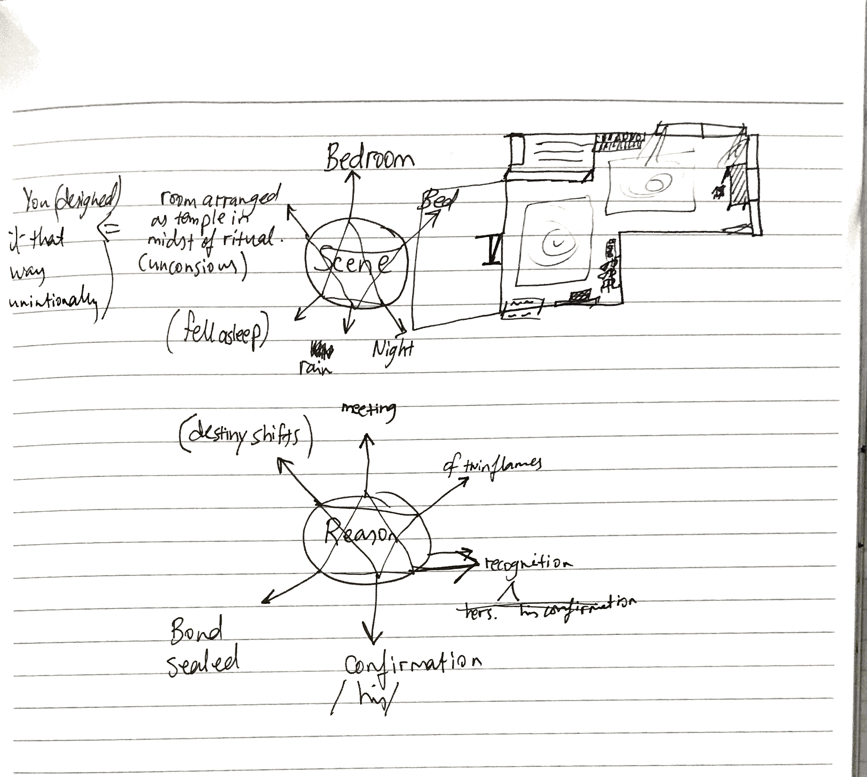 Bedroom
You (designed)
it that
way
unintionally)
=
room arranged
as temple in
midst of ritual.
(unconsious)
Scene
Bed
(fell asleep)
rain
Night
meeting
(destiny shifts)
of twinflames
Reason
recognition
hers. his confirmation
Bond
sealed
Confirmation
/ his /